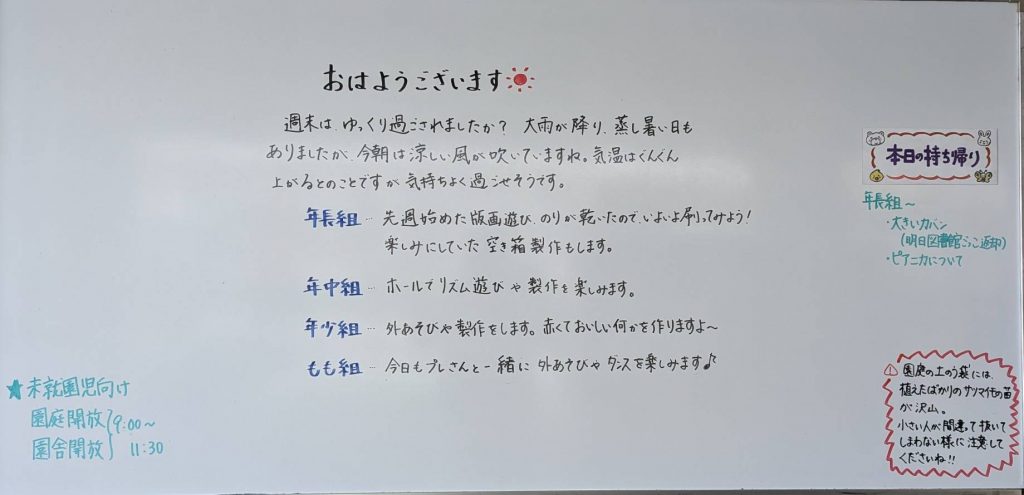 おはようございます
週末は、ゆっくり過ごされましたか？ 大雨が降り、蒸し暑い日も
ありましたが、今朝は涼しい風が吹いていますね。気温はぐんぐん
上がるとのことですが気持ちよく過ごせそうです。
年長組… 先週始めた版画遊び、のりが乾いたので、いよいよ刷ってみよう！
楽しみにしていた空き箱製作もします。
年中組… ホールでリズム遊びや製作を楽しみます。
年少組… 外あそびや製作をします。赤くておいしい何かを作りますよ～
もも組… 今日もプレさんと一緒に外あそびやダンスを楽しみます♪
★未就園児向け
園庭開放
園舎開放
9:00～
11:30
本日の持ち帰り
年長組～
・大きいカバン
（明日図書館ごっこ返却）
・ピアニカについて
園庭の土のう袋には、
植えたばかりのサツマイモの苗
が沢山。
小さい人が間違って抜いて
しまわない様に注意して
くださいね!!